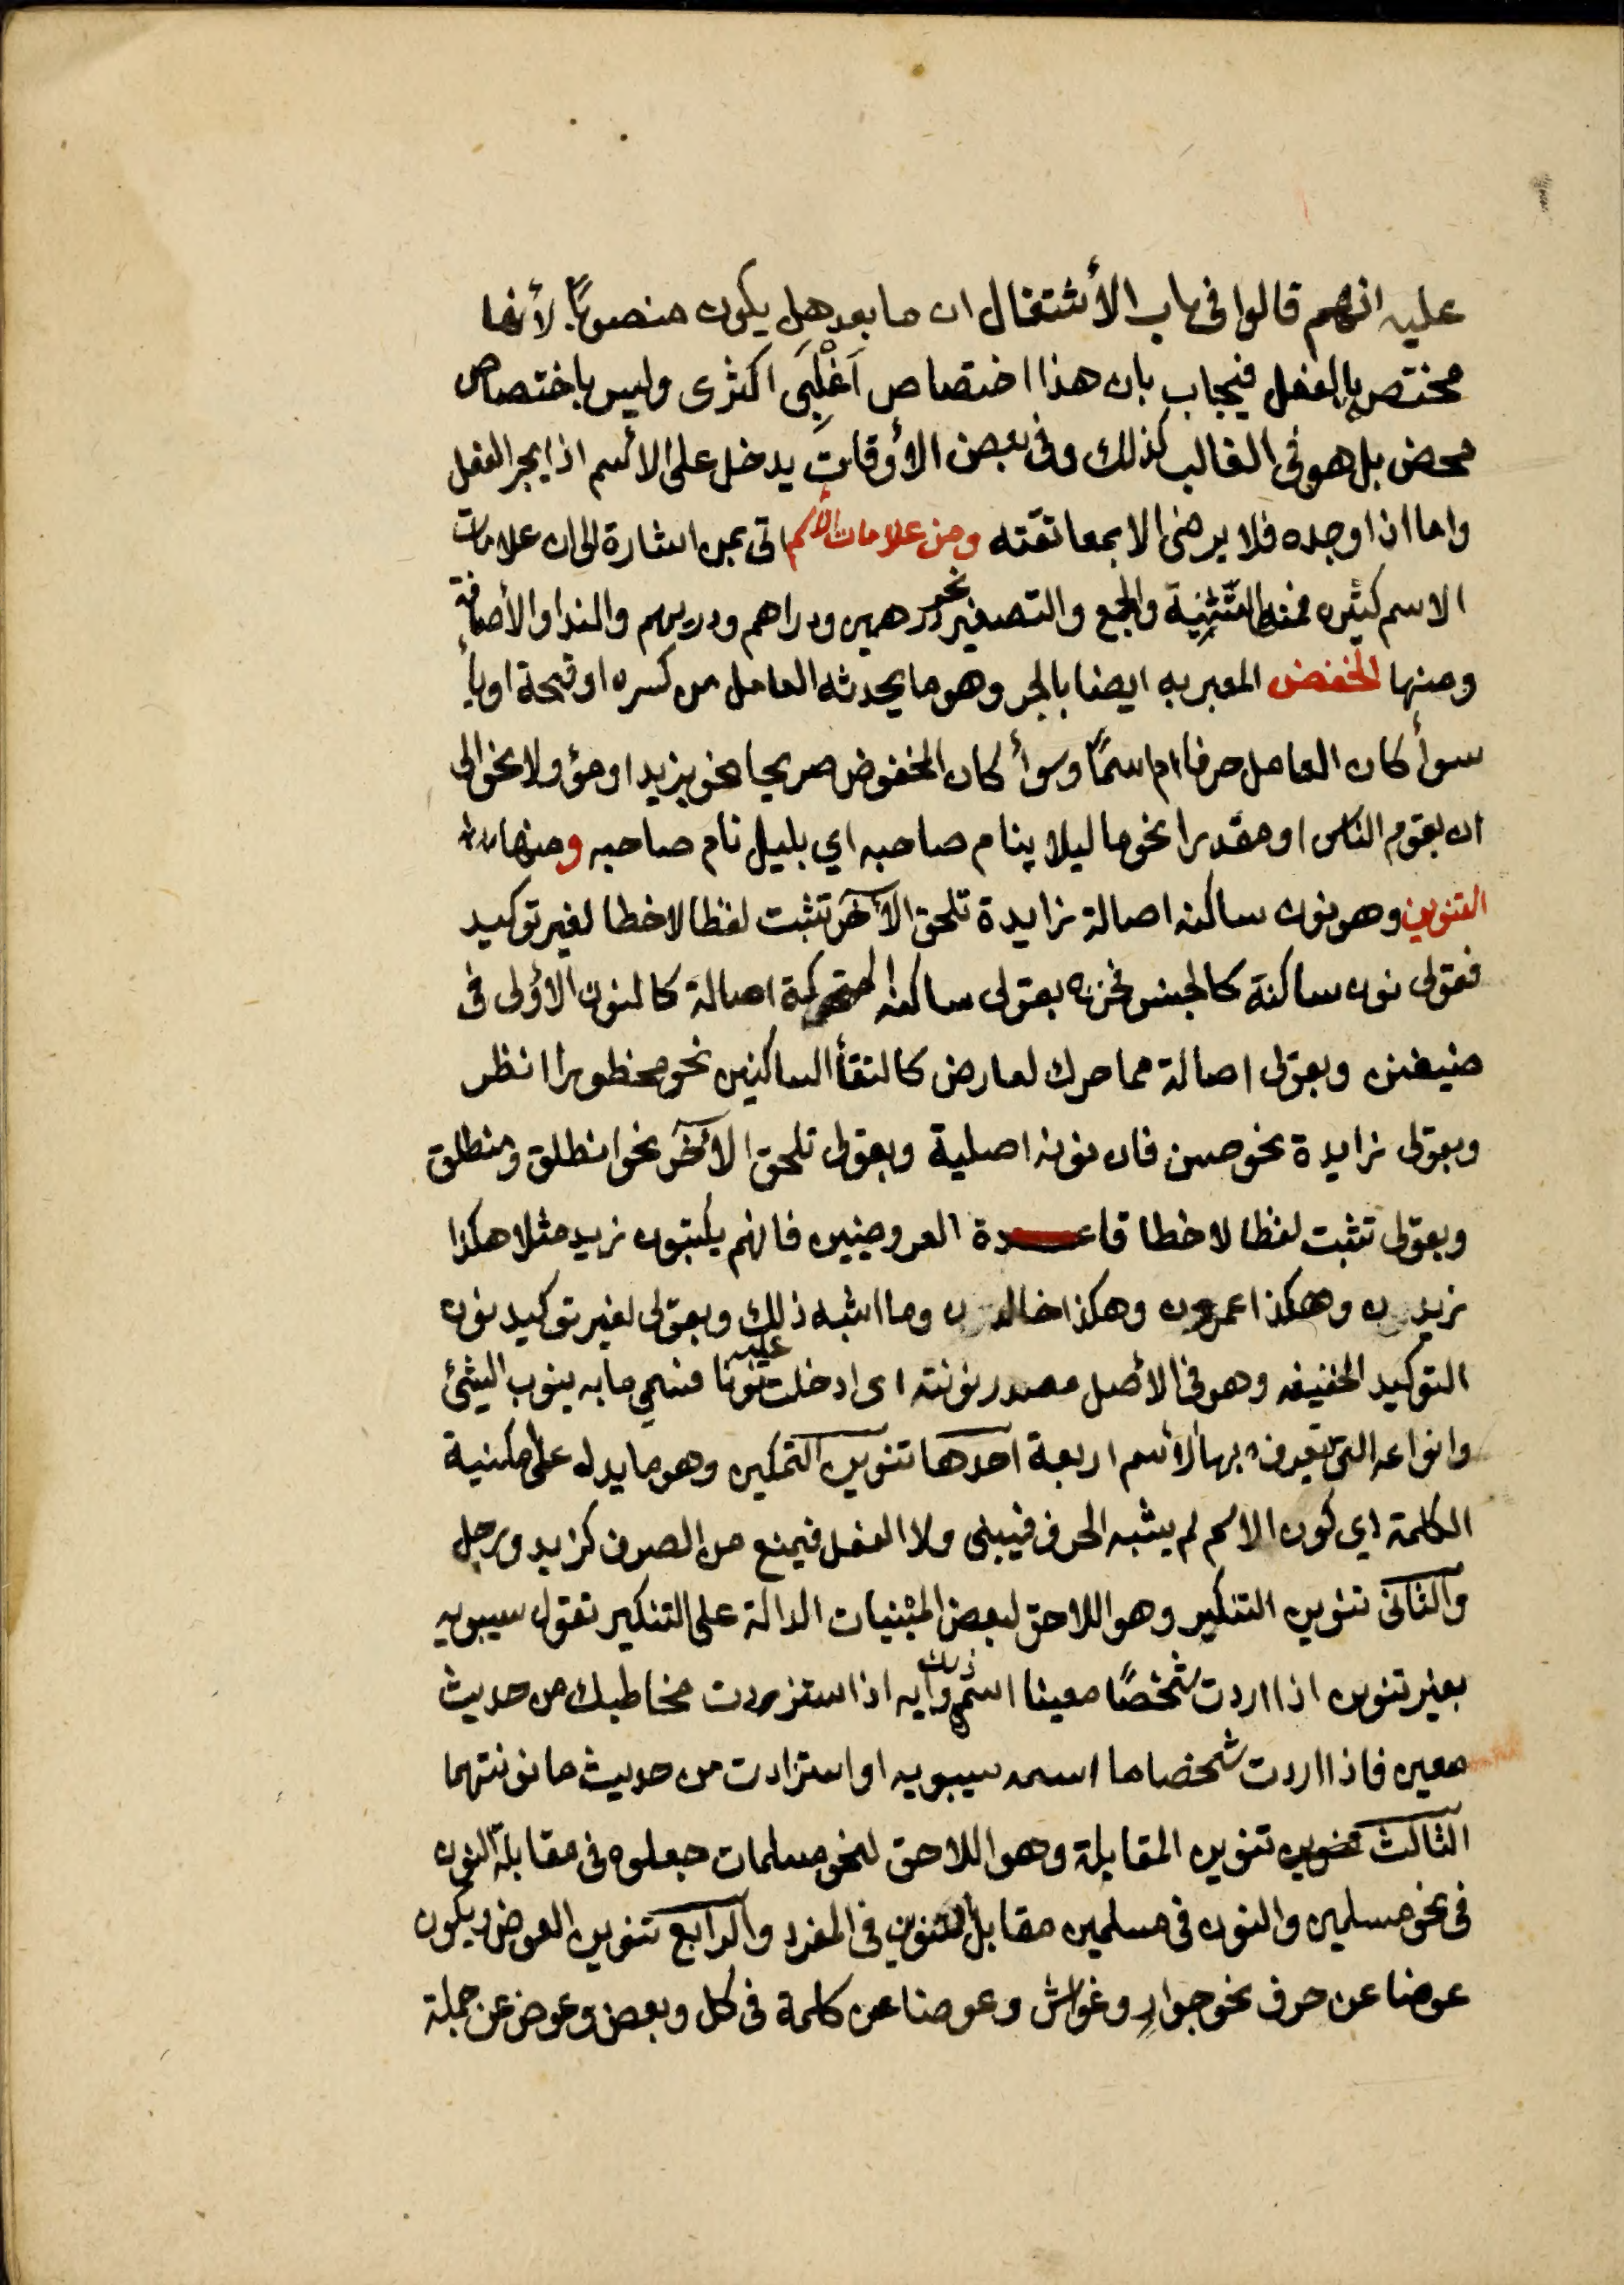 عليه انهم قالوا فى باب الأشتغال ان ما بعد هل يكون منصوبًا لأنها
مختص بالفعل فيجاب بان هذا اختصاص اَغْلِبَى اكثرى وليس باختصاص
محض بل هو فى الغالب كذلك وفى بعض الأوقاتِ يدخل على الأسم اذا يجر الفعل
واما اذا وجده فلا يرضى الا بمعانقته ومن علامات الأسم اتى بمن اشارة الى ان علامات
الاسم كثيره فمنها التَّثنِية والجمع والتصغير نحو درهمين ودراهم ودريهم والندا والأضافة
ومنها الخفض المعبر به ايضا بالجر وهو ما يحدثه العامل من كسره او فتحة او يأ
سوأ كان العامل حرفا ام اسمًا وسوأ كان المخفوض صريحا نحو بزيد او مؤولا نحو الى
ان يقوم الناس او مقدرا نحو ما ليلا ينام صاحبه اي بليل نام صاحبه ومنها
التنوين وهو نون ساكنه اصالة زايدة تلحق الآخر تثبت لفظا لا خطا لغير توكيد
فقولى نون ساكنة كالجنس فخرج بقولى ساكنه المتحركة اصالة كالنون الأولى فى
ضيفن وبقولى اصالة مما حرك لعارض كالتقأ الساكنين نحو محظورا انظر
وبقولى زايدة نحو حسن فان نونه اصلية وبقولى تلحق الأخر نحو انطلق ومنطلق
وبقولى تثبت لفظا لا خطا قاعدة العروضيين فانهم يكتبون زيد مثلا هكذا
زيدن وهكذا عمرون وهكذا خالدن وما اشبه ذلك وبقولى لغير توكيد نون
التوكيد الخفيفه وهو فى الأصل مصدر نونته اى ادخلت عليه نونًا فسمي ما به ينوب الشئ
وانواعه التى يعرف بها الأسم اربعة احدها تنوين التمكين وهو ما يدل على أمكنية
الكلمة اي كون الاسم لم يشبه الحرف فيبنى ولا الفعل فيمنع من الصرف كزيد ورجل
والثانى تنوين التنكير وهو اللاحق لبعض المبنيات الدالة على التنكير تقول سيبويه
بغير تنوين اذا اردت شخصًا معينا اسمه ذلك وايه اذا استزردت مخاطبك من حديث
معين فاذا اردت شخصا ما اسمه سيبويه او استزادت من حديث ما نونتهما
الثالث تنوين المقابلة وهو اللاحق لنحو مسلمات جعلوه فى مقابلة النون
فى نحو مسلمين والنون فى مسلمين مقابل التنوين فى المفرد والرابع تنوين العوض ويكون
عوضا عن حرف نحو جوارٍ وغواش وعوضا عن كلمة فى كل وبعض وعوض عن جملة